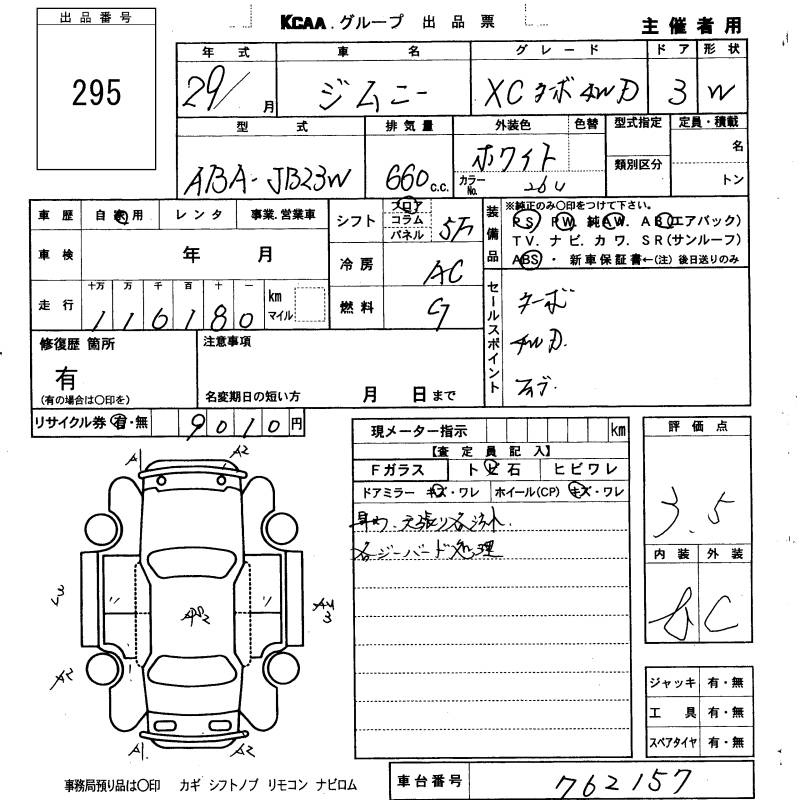 出品番号
295
KCAA.グループ 出品票
主催者用
年式 車名 グレード ドア 形状
29/ 月 ジムニー XC ターボ 4WD 3 W
型式 排気量 外装色 色替 型式指定 定員・積載
ABA-JB23W 660 c.c. ホワイト
カラーNo. 26U
類別区分
名
トン
車歴 自家用 レンタ 事業.営業車
シフト フロア コラム パネル 5F
装備品
※純正のみ○印をつけて下さい。
PS. PW. 純AW. AB(エアバック)
TV. ナビ. カワ. SR(サンルーフ)
ABS・新車保証書←(注)後日送りのみ
車検 年 月
冷房 AC
走行 十万 万 千 百 十 一
116180 km マイル
燃料 G
セールスポイント
ターボ
4WD.
修復歴 箇所
有
(有の場合は○印を)
注意事項
名変期日の短い方 月 日まで
リサイクル券 有・無 9010円
現メーター指示 km
【査定員記入】
Fガラス トビ石 ヒビワレ
ドアミラー キズ・ワレ ホイール(CP) キズ・ワレ
評価点
3.5
内装 外装
C
A1 A2
A2
A1 A2
ジャッキ 有・無
工具 有・無
スペアタイヤ 有・無
事務局預り品は○印 カギ シフトノブ リモコン ナビロム
車台番号 762157